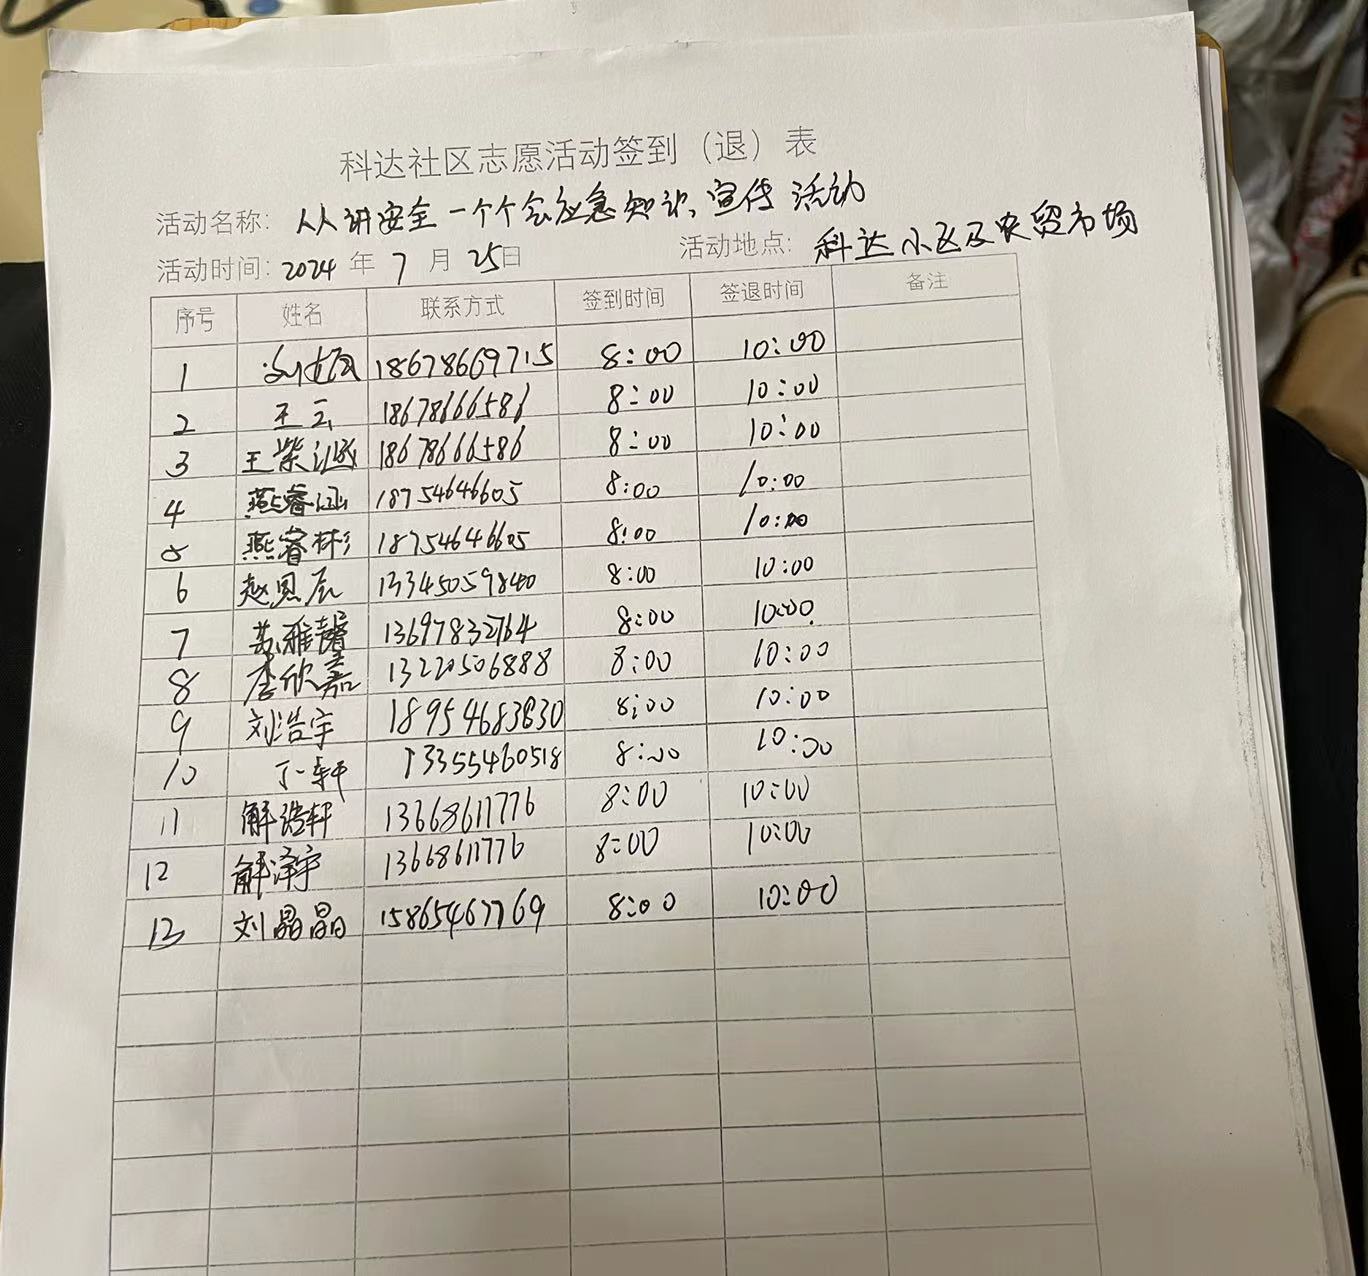 科达社区志愿活动签到（退）表
活动名称: 人人讲安全一个个会应急知识宣传活动
活动时间: 2024年7月25日 活动地点: 科达小区及农贸市场
序号 姓名 联系方式 签到时间 签退时间 备注
1 18678669715 8:00 10:00
2 王云 18678666586 8:00 10:00
3 王紫涵 18678666586 8:00 10:00
4 燕睿涵 18754646605 8:00 10:00
5 燕睿彬 18754646605 8:00 10:00
6 赵思辰 13345059840 8:00 10:00
7 苏雅馨 13697832764 8:00 10:00
8 李欣嘉 13220506888 8:00 10:00
9 刘浩宇 18954683830 8:00 10:00
10 丁一轩 13355460518 8:00 10:00
11 解浩轩 13668611776 8:00 10:00
12 解泽宇 13668611776 8:00 10:00
13 刘晶晶 15865467769 8:00 10:00